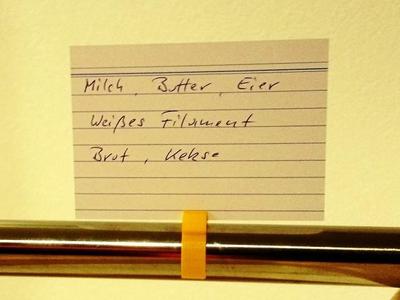 Milch, Butter, Eier
Weißes Filament
Brot, Kekse